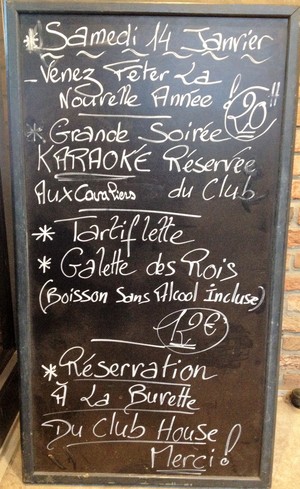 * Samedi 14 Janvier
- Venez Fêter La
Nouvelle Année !
"20"
* Grande Soirée
KARAOKÉ Réservée
Aux Cavaliers du Club
* Tartiflette
* Galette des Rois
(Boisson Sans Alcool Incluse)
12€
* Réservation
À La Buvette
Du Club House
Merci !